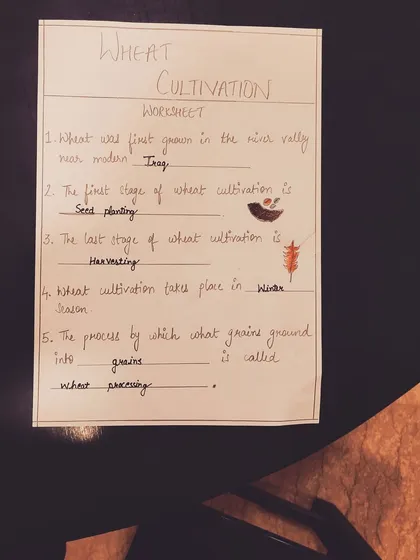 WHEAT
CULTIVATION
WORKSHEET
1. Wheat was first grown in the river valley
near modern Iraq
2. The first stage of wheat cultivation is
Seed planting.
3. The last stage of wheat cultivation is
Harvesting
4. Wheat cultivation takes place in Winter
Season.
5. The process by which what grains ground
into grains is called
Wheat processing.